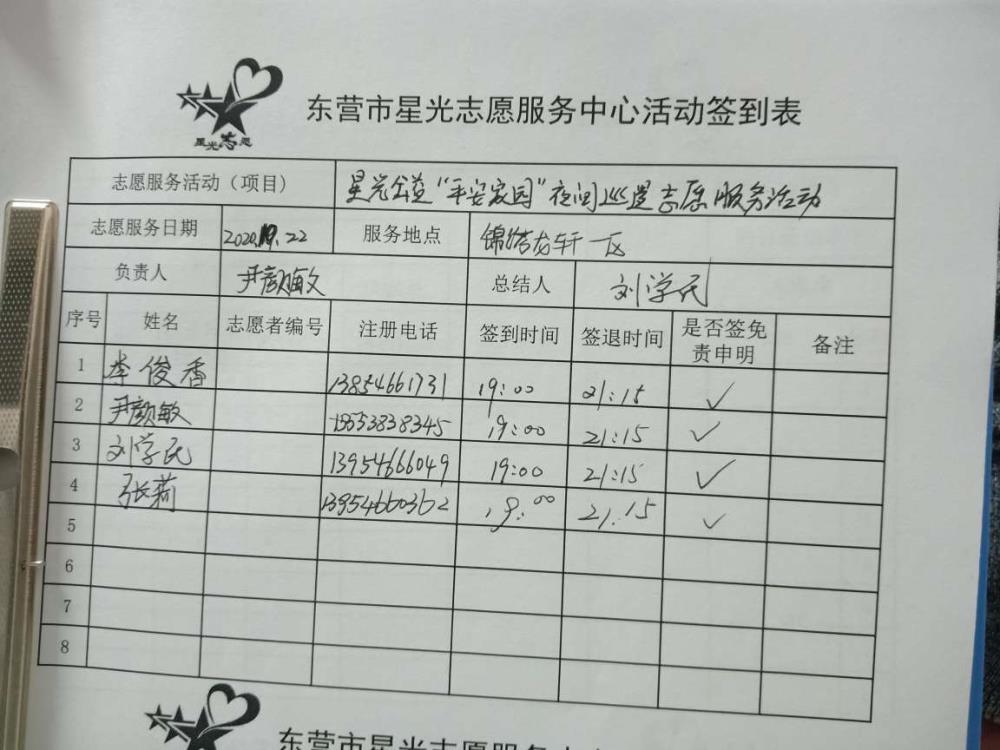 星光志愿
东营市星光志愿服务中心活动签到表
志愿服务活动（项目） 星光公益“平安家园”夜间巡逻志愿服务活动
志愿服务日期 2020.10.22 服务地点 锦绣龙轩一区
负责人 尹颜敏 总结人 刘学民
序号 姓名 志愿者编号 注册电话 签到时间 签退时间 是否签免责申明 备注
1 李俊香 13854661731 19:00 21:15 ✓
2 尹颜敏 13553838345 19:00 21:15 ✓
3 刘学民 13954666049 19:00 21:15 ✓
4 张莉 13954660362 19:00 21:15 ✓
5
6
7
8
东营市星光志愿服务中心